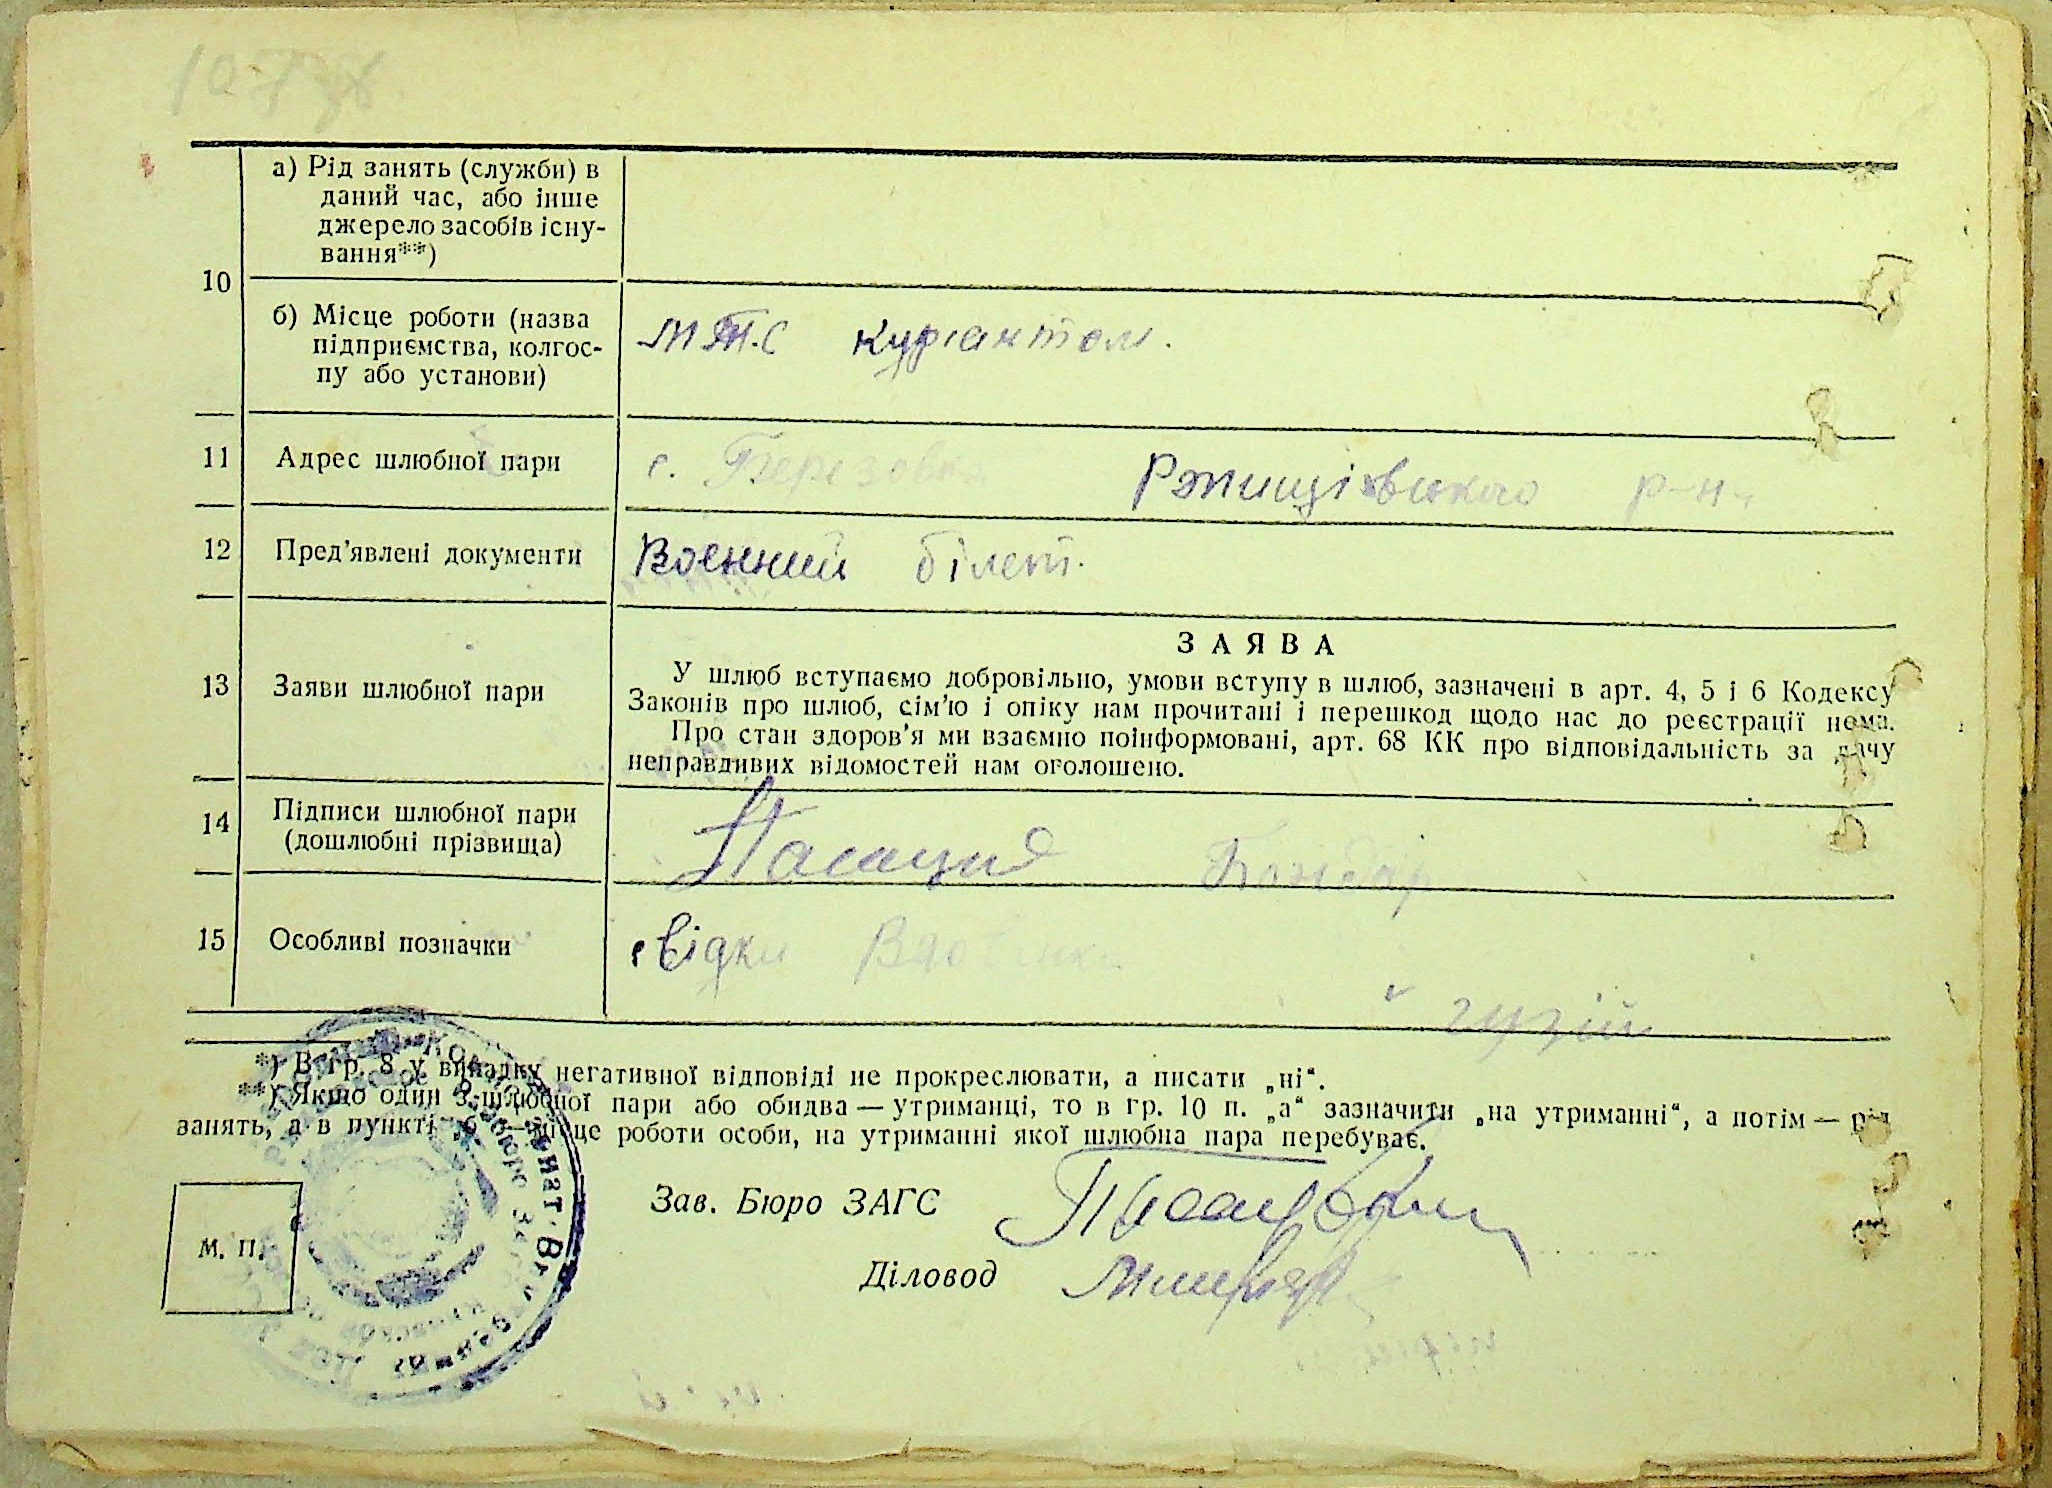 10
а) Рід занять (служби) в
даний час, або інше
джерело засобів існу-
вання**)
б) Місце роботи (назва
підприємства, колгос-
пу або установи)
МТС
11
Адрес шлюбної пари
с. Березовка Ржищівського р-н
12
Пред'явлені документи
Военний білет.
13
Заяви шлюбної пари
ЗАЯВА
У шлюб вступаємо добровільно, умови вступу в шлюб, зазначені в арт. 4, 5 і 6 Кодексу
Законів про шлюб, сім'ю і опіку нам прочитані і перешкод щодо нас до реєстрації нема.
Про стан здоров'я ми взаємно поінформовані, арт. 68 КК про відповідальність за дачу
неправдивих відомостей нам оголошено.
14
Підписи шлюбної пари
(дошлюбні прізвища)
Бондар
15
Особливі позначки
свідки
й гузій
*) В гр. 8 у випадку негативної відповіді не прокреслювати, а писати „ні“.
**) Якщо один з шлюбної пари або обидва — утриманці, то в гр. 10 п. „а“ зазначити „на утриманні“, а потім — рід
занять, а в пункті „б“ — місце роботи особи, на утриманні якої шлюбна пара перебуває.
Зав. Бюро ЗАГС
Діловод
М. П.